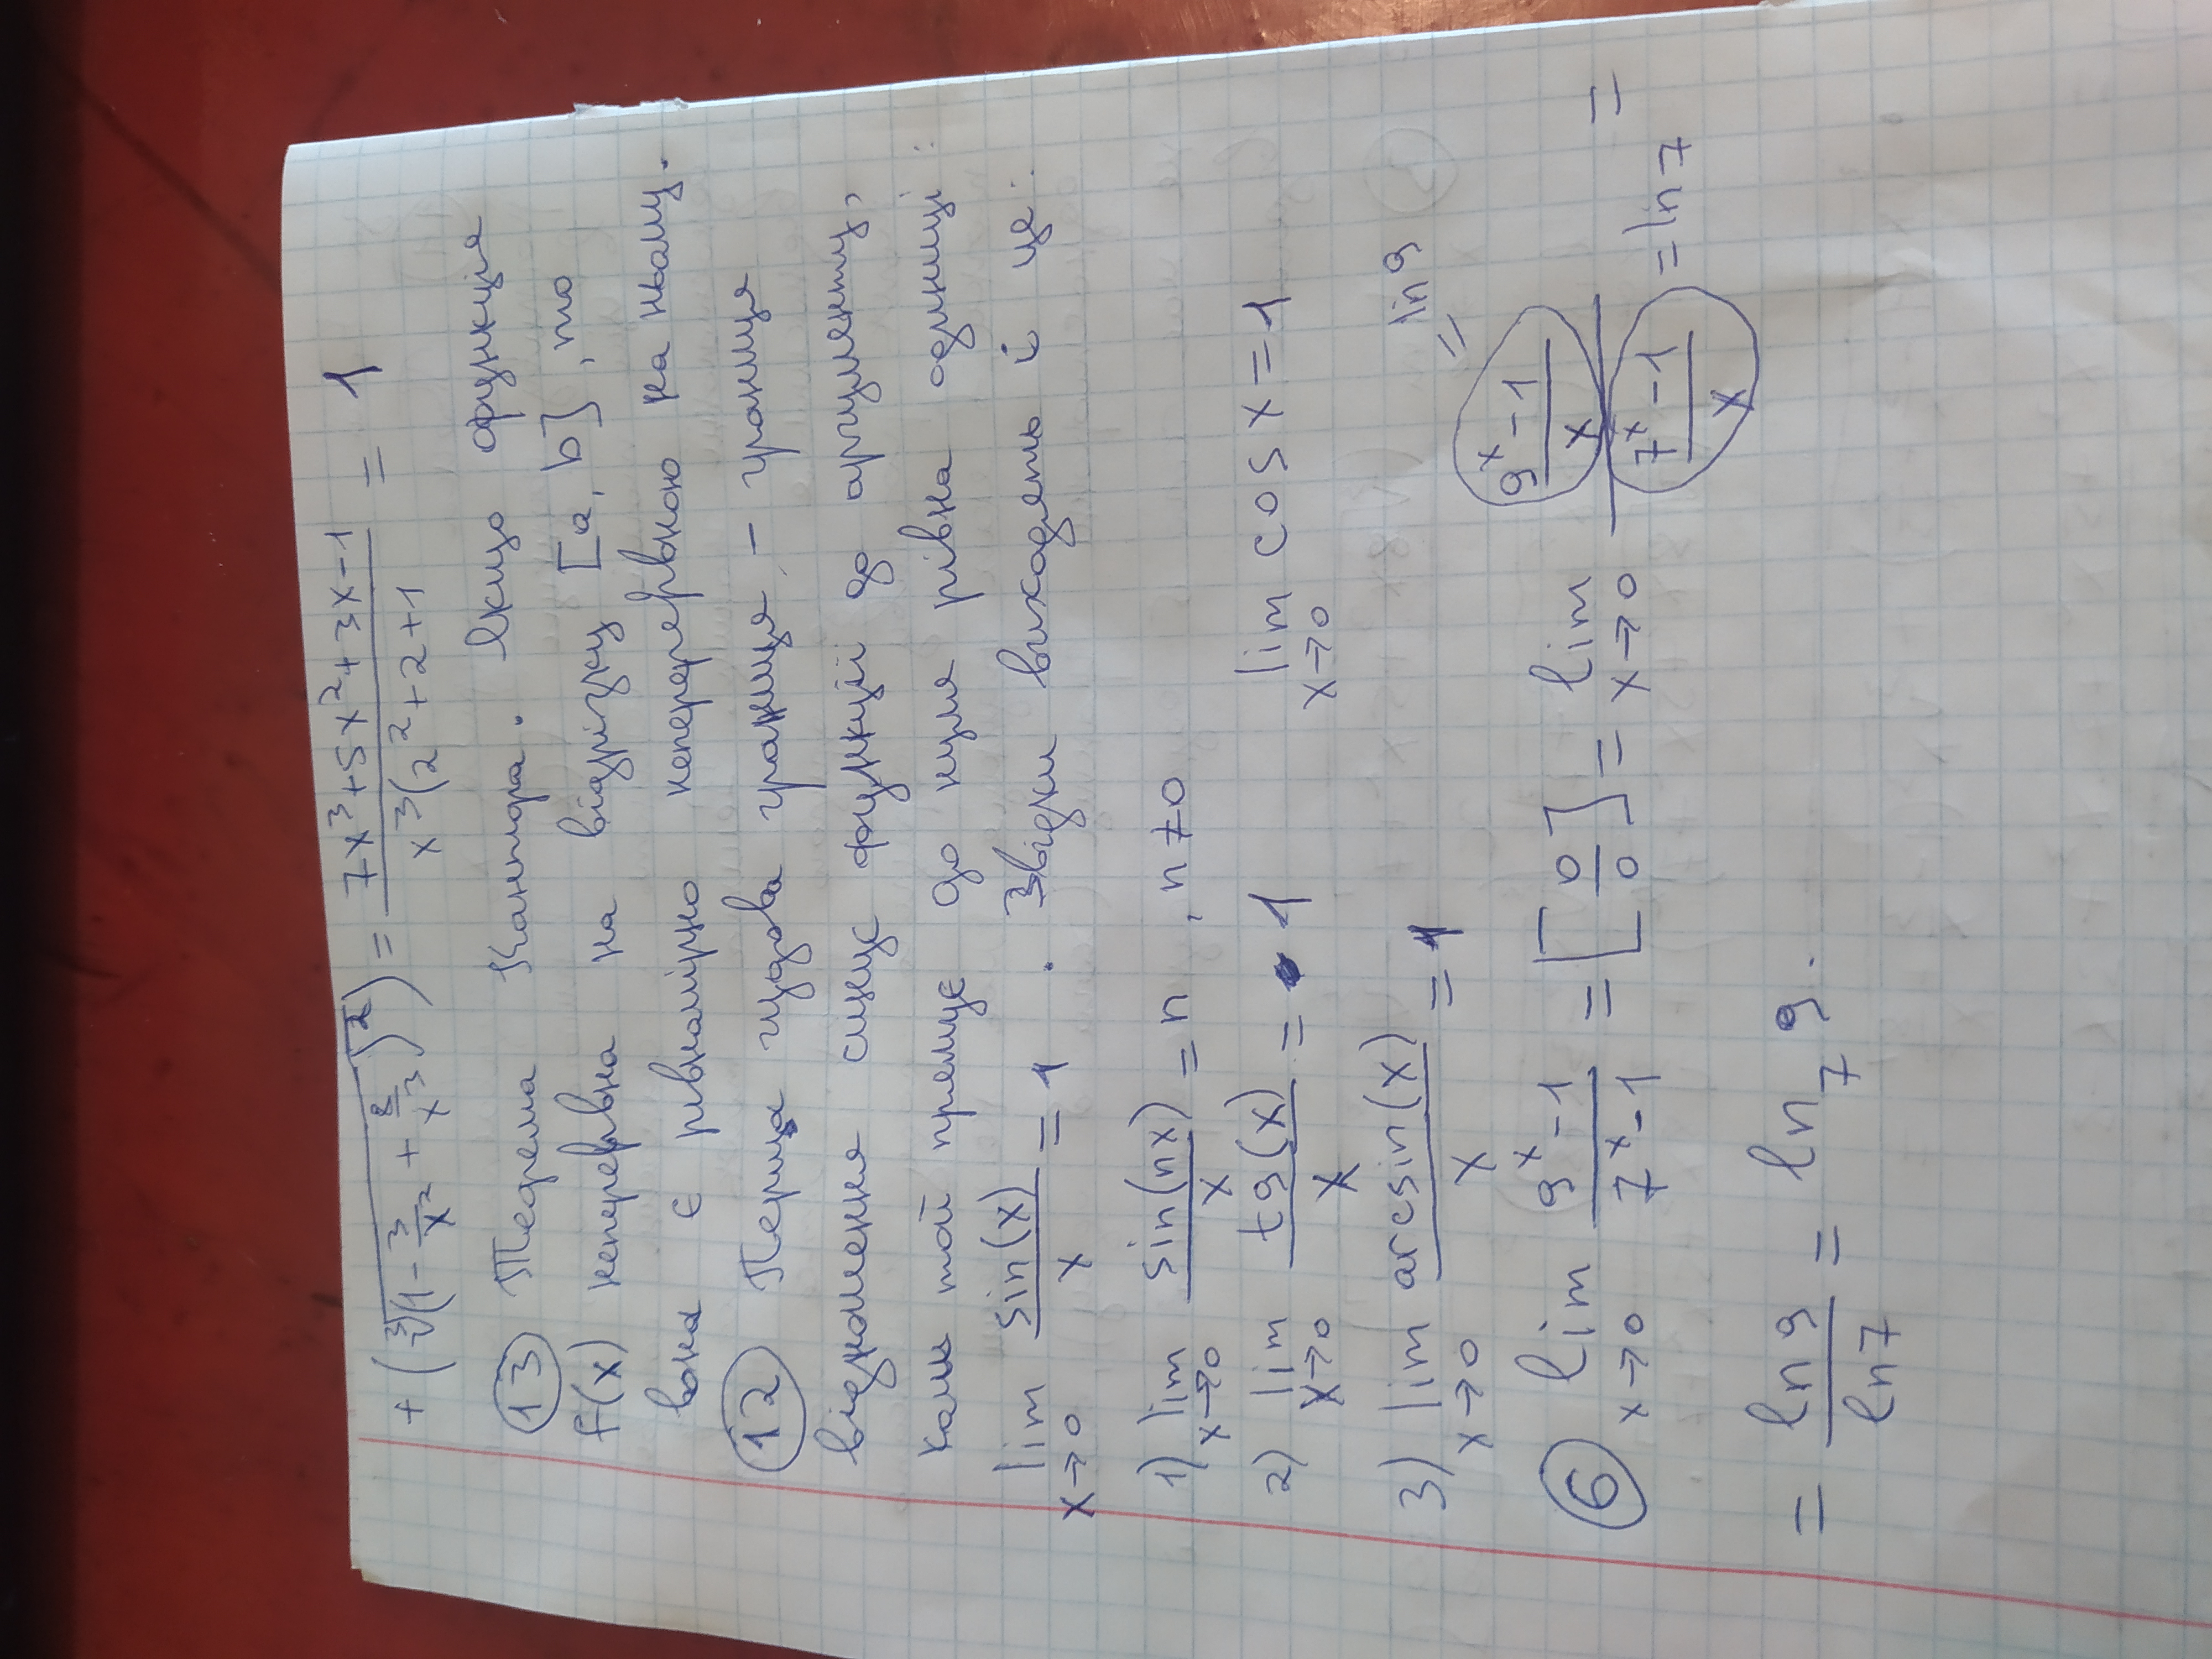 + (∛(1 - 3/x² + 8/x³)²) = (7x³+5x²+3x-1)/(x³(2²+2+1) = 1
13 Теорема Кантора. Якщо функція
f(x) неперервна на відрізку [a, b], то
вона є рівномірно неперервною на ньому.
12 Перша чудова границя – границя
відношення синус функції до аргументу,
коли той прямує до нуля рівна одиниці:
lim x→0 sin(x)/x = 1 . Звідки виходять і це:
1) lim x→0 sin(nx)/x = n , n≠0
2) lim x→0 tg(x)/x = 1 lim x→0 cos x = 1
3) lim x→0 arcsin(x)/x = 1
6 lim x→0 (9ˣ-1)/(7ˣ-1) = [0/0] = lim x→0 ((9ˣ-1)/x = ln 9)/((7ˣ-1)/x = ln 7) =
= ln 9/ln 7 = ln₇ 9.